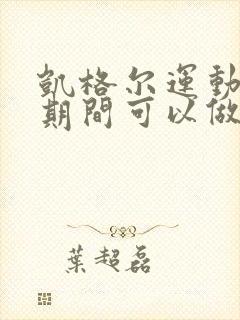 凱格尔運動
期間可以做
葉超磊